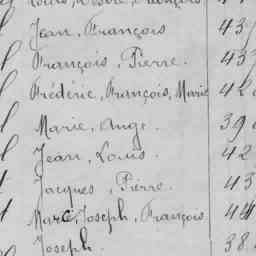 Louis, Désiré, François
Jean, François 43
François, Pierre. 43
Frédéric, François, Marie 42
Marie, Ange. 39
Jean, Louis 42
Jacques, Pierre. 43
Marc, Joseph, François 44
Joseph. 38